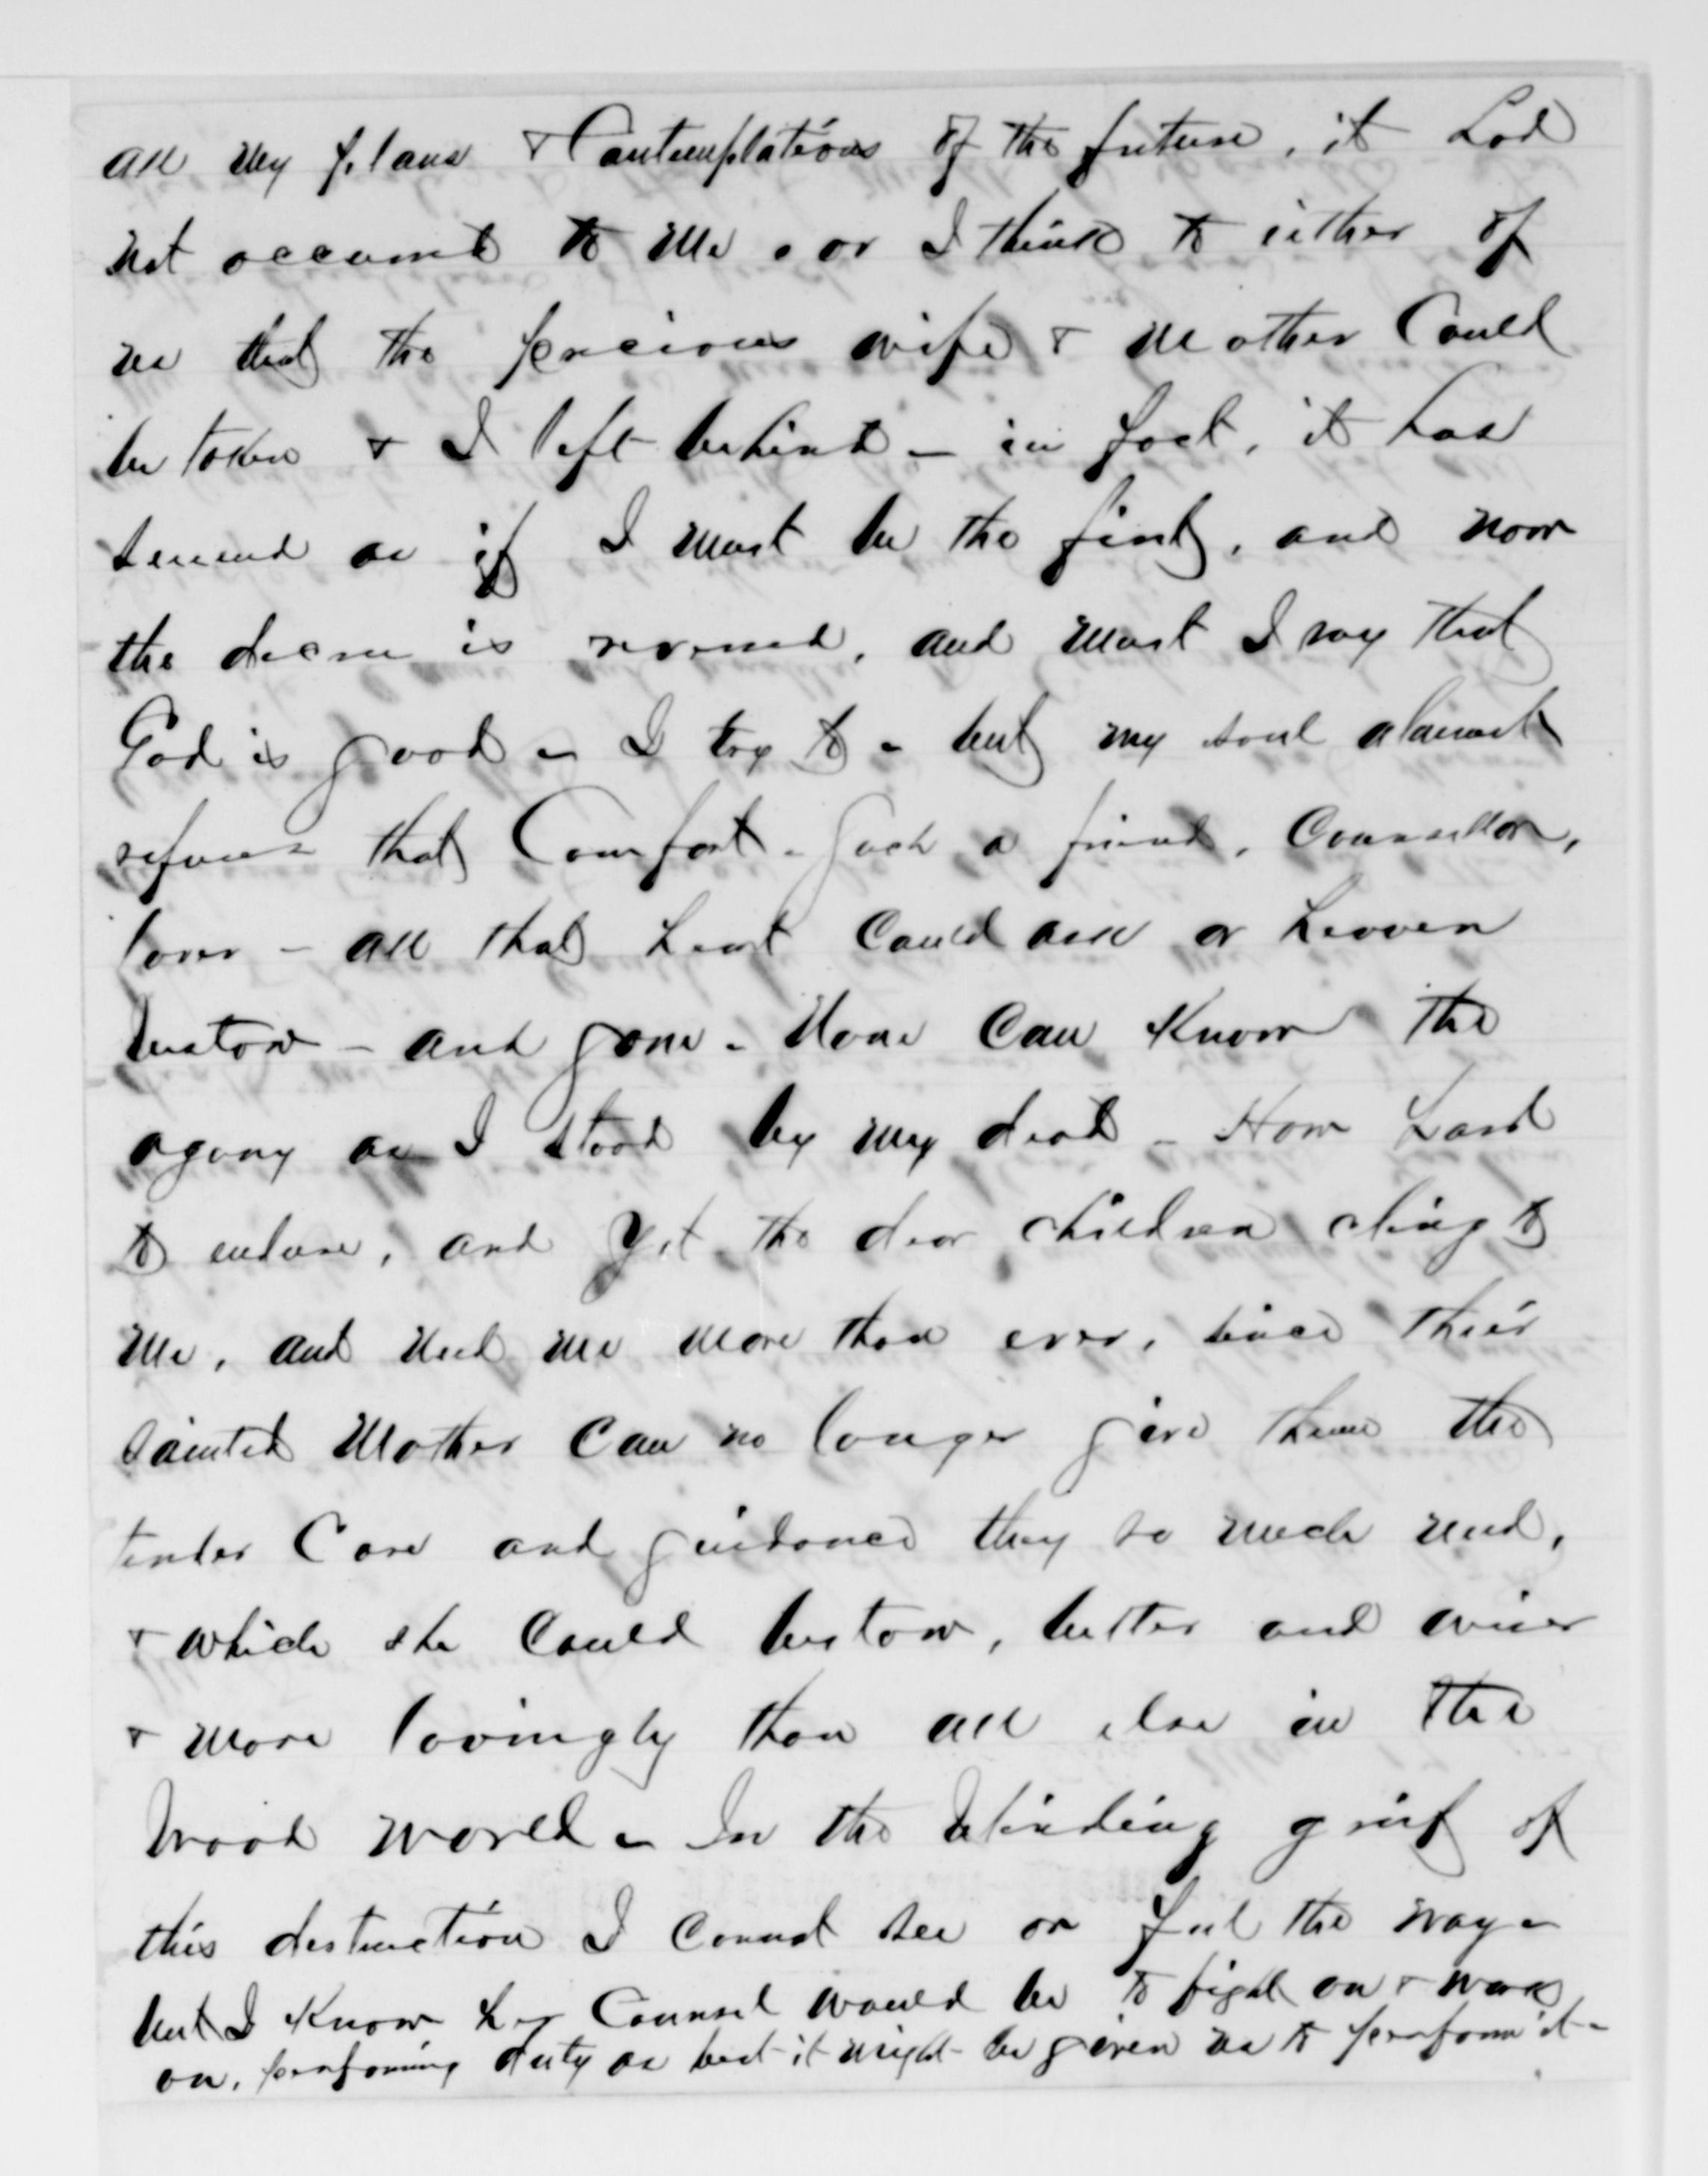 all my plans & Contemplations of the future, it had
not occurred to me, or I think to either of
us that the precious wife & mother Could
be taken & I left behind – in fact, it has
seemed as if I must be the first, and now
the decree is reversed, and must I say that
God is good – I try to – but my soul almost
refuses that Comfort – Such a friend, Counsellor,
lover – all that heart Could ask or heaven
bestow – and gone – None Can Know the
agony as I stood by my dead – How hard
to endure, and yet the dear children cling to
me, and need me more than ever, since their
sainted Mother Can no longer give them the
tender Care and guidance they so much need,
& which she Could bestow, better and wiser
& more lovingly than all else in the
broad world – In the blinding grief of
this destruction I cannot see or feel the way –
but I Know her Counsel would be to fight on & work
on, performing duty as best it might be given us to perform it –